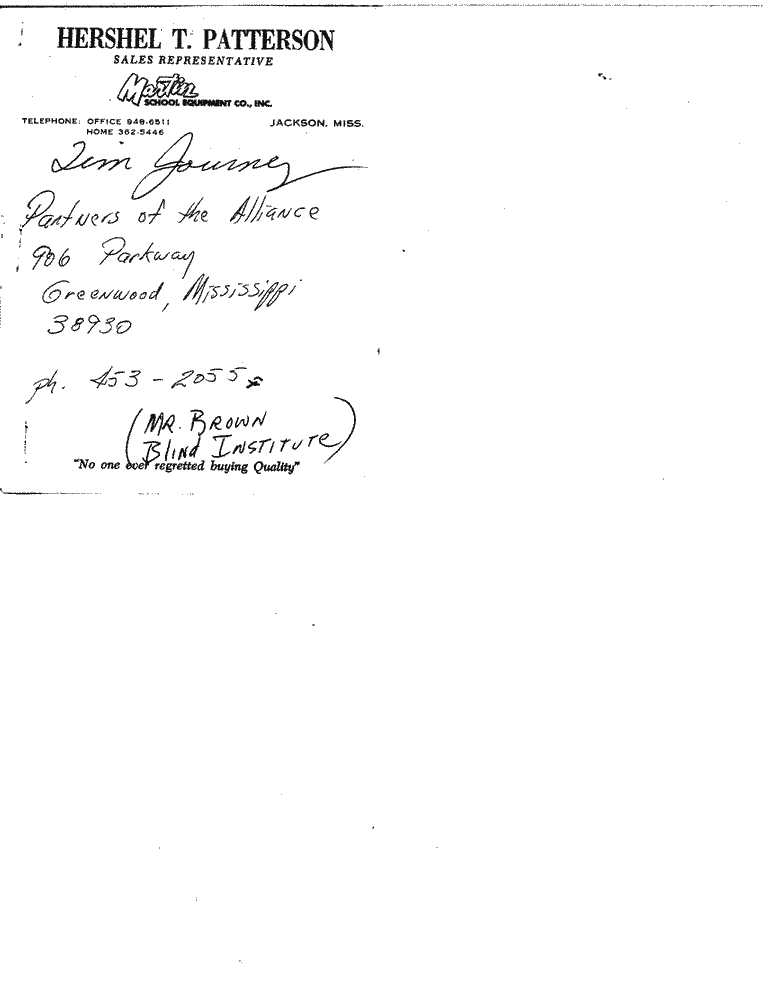 HERSHEL T. PATTERSON
SALES REPRESENTATIVE
Martin
SCHOOL EQUIPMENT CO., INC.
TELEPHONE: OFFICE 948-6511 JACKSON, MISS.
HOME 362-5446
Jim Journey
Partners of the Alliance
906 Parkway
Greenwood, Mississippi
38930
ph. 453-2055
(MR. BROWN
Blind INSTITUTE)
"No one ever regretted buying Quality"